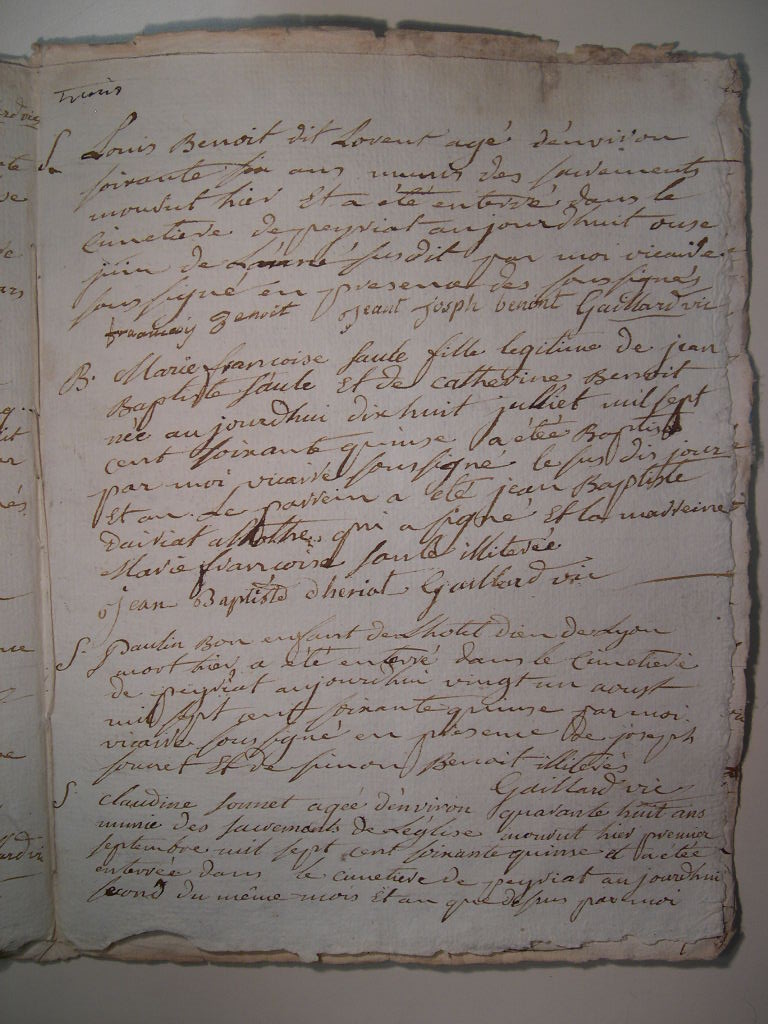 trois
S. Louis Benoit dit Lorent agé d'environ
soixante six ans munis des sacrements
mourut hier Et a été enterré dans le
Cimetiere de peyriat aujourdhuit onse
juin de L'anné susdit par moi vicaire
soussigné en presence des soussignés
francois Benoit jeant josph benoit Gaillard vic
B. Marie francoise saule fille legitime de jean
Baptiste saule Et de catherine Benoit
née aujourdhui dix huit julliet mil sept
cent soixante quinse a étéé Baptisé
par moi vicaire soussigné le sus dis jour
Et an. Le parrein a été jean Baptiste
qui a signé Et la marreine
Marie francoise saule illiterée
jean Baptiste dheriat Gaillard vic
S. Paulin Bon enfant de Lhotel dieu de Lyon
mort hier a été enterré dans le Cimetiere
de peyriat aujourdhui vingt un aoust
mil sept cent soixante quinse par moi
vicaire soussigné en presence de joseph
sonnet Et de simon Benoit illiterés
Gaillard vic
S. claudine sonnet agéé d'environ quarante huit ans
munie des sacrements de L'église mourut hier premier
septembre mil sept cent soixante quinse et a étéé
enterréé dans le cimetiere de peyriat aujourdhui
second du même mois Et an que dessus par moi